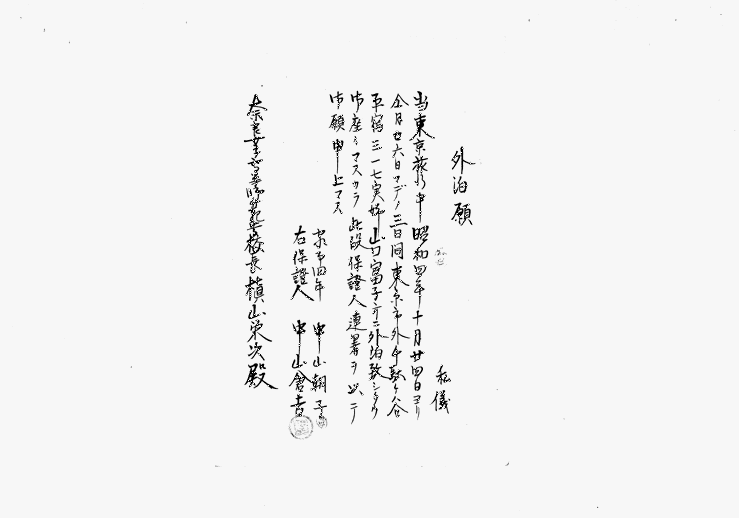 外泊願
私儀
当東京旅行中昭和四年十月廿四日ヨリ
仝月廿六日マデノ三日間東京市外千駄ヶ谷
三一七実姉山口富子方ニ外泊致シタク
御座ヰマスカラ此段保證人連署ヲ以テ
御願申上マス
家事四年 中山朝子
右保證人 中山倉吉
奈良女子高等師範学校長槇山栄次殿